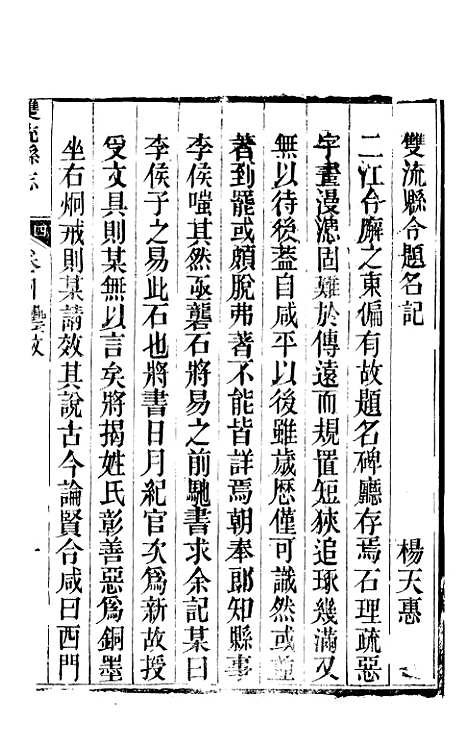 雙流縣令題名記
楊天惠
二江令廨之東偏有故題名碑廳存焉石理疏惡
字畫漫漶固難於傳遠而規置短狹追琢幾滿又
無以待後蓋自咸平以後雖歲歷僅可識然或並
著到罷或頗脫弗著不能皆詳焉朝奉郎知縣事
李侯嗤其然亟礱石將易之前馳書求余記某曰
李侯子之易此石也將書日月紀官次為新故授
受文具則某無以言矣將揭姓氏彰善惡為銅墨
坐右炯戒則某請效其說古今論賢令咸曰西門
雙流縣志
四
卷四藝文
一